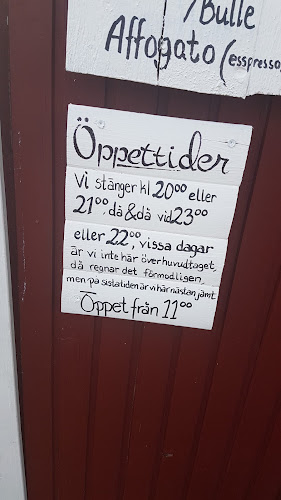 /Bulle
Affogato (esspresso
Öppettider
Vi stänger kl 20⁰⁰ eller
21⁰⁰, då & då vid 23⁰⁰
eller 22⁰⁰, vissa dagar
är vi inte här överhuvudtaget,
då regnar det förmodligen,
men på sista tiden är vi här nästan jämt
Öppet från 11⁰⁰